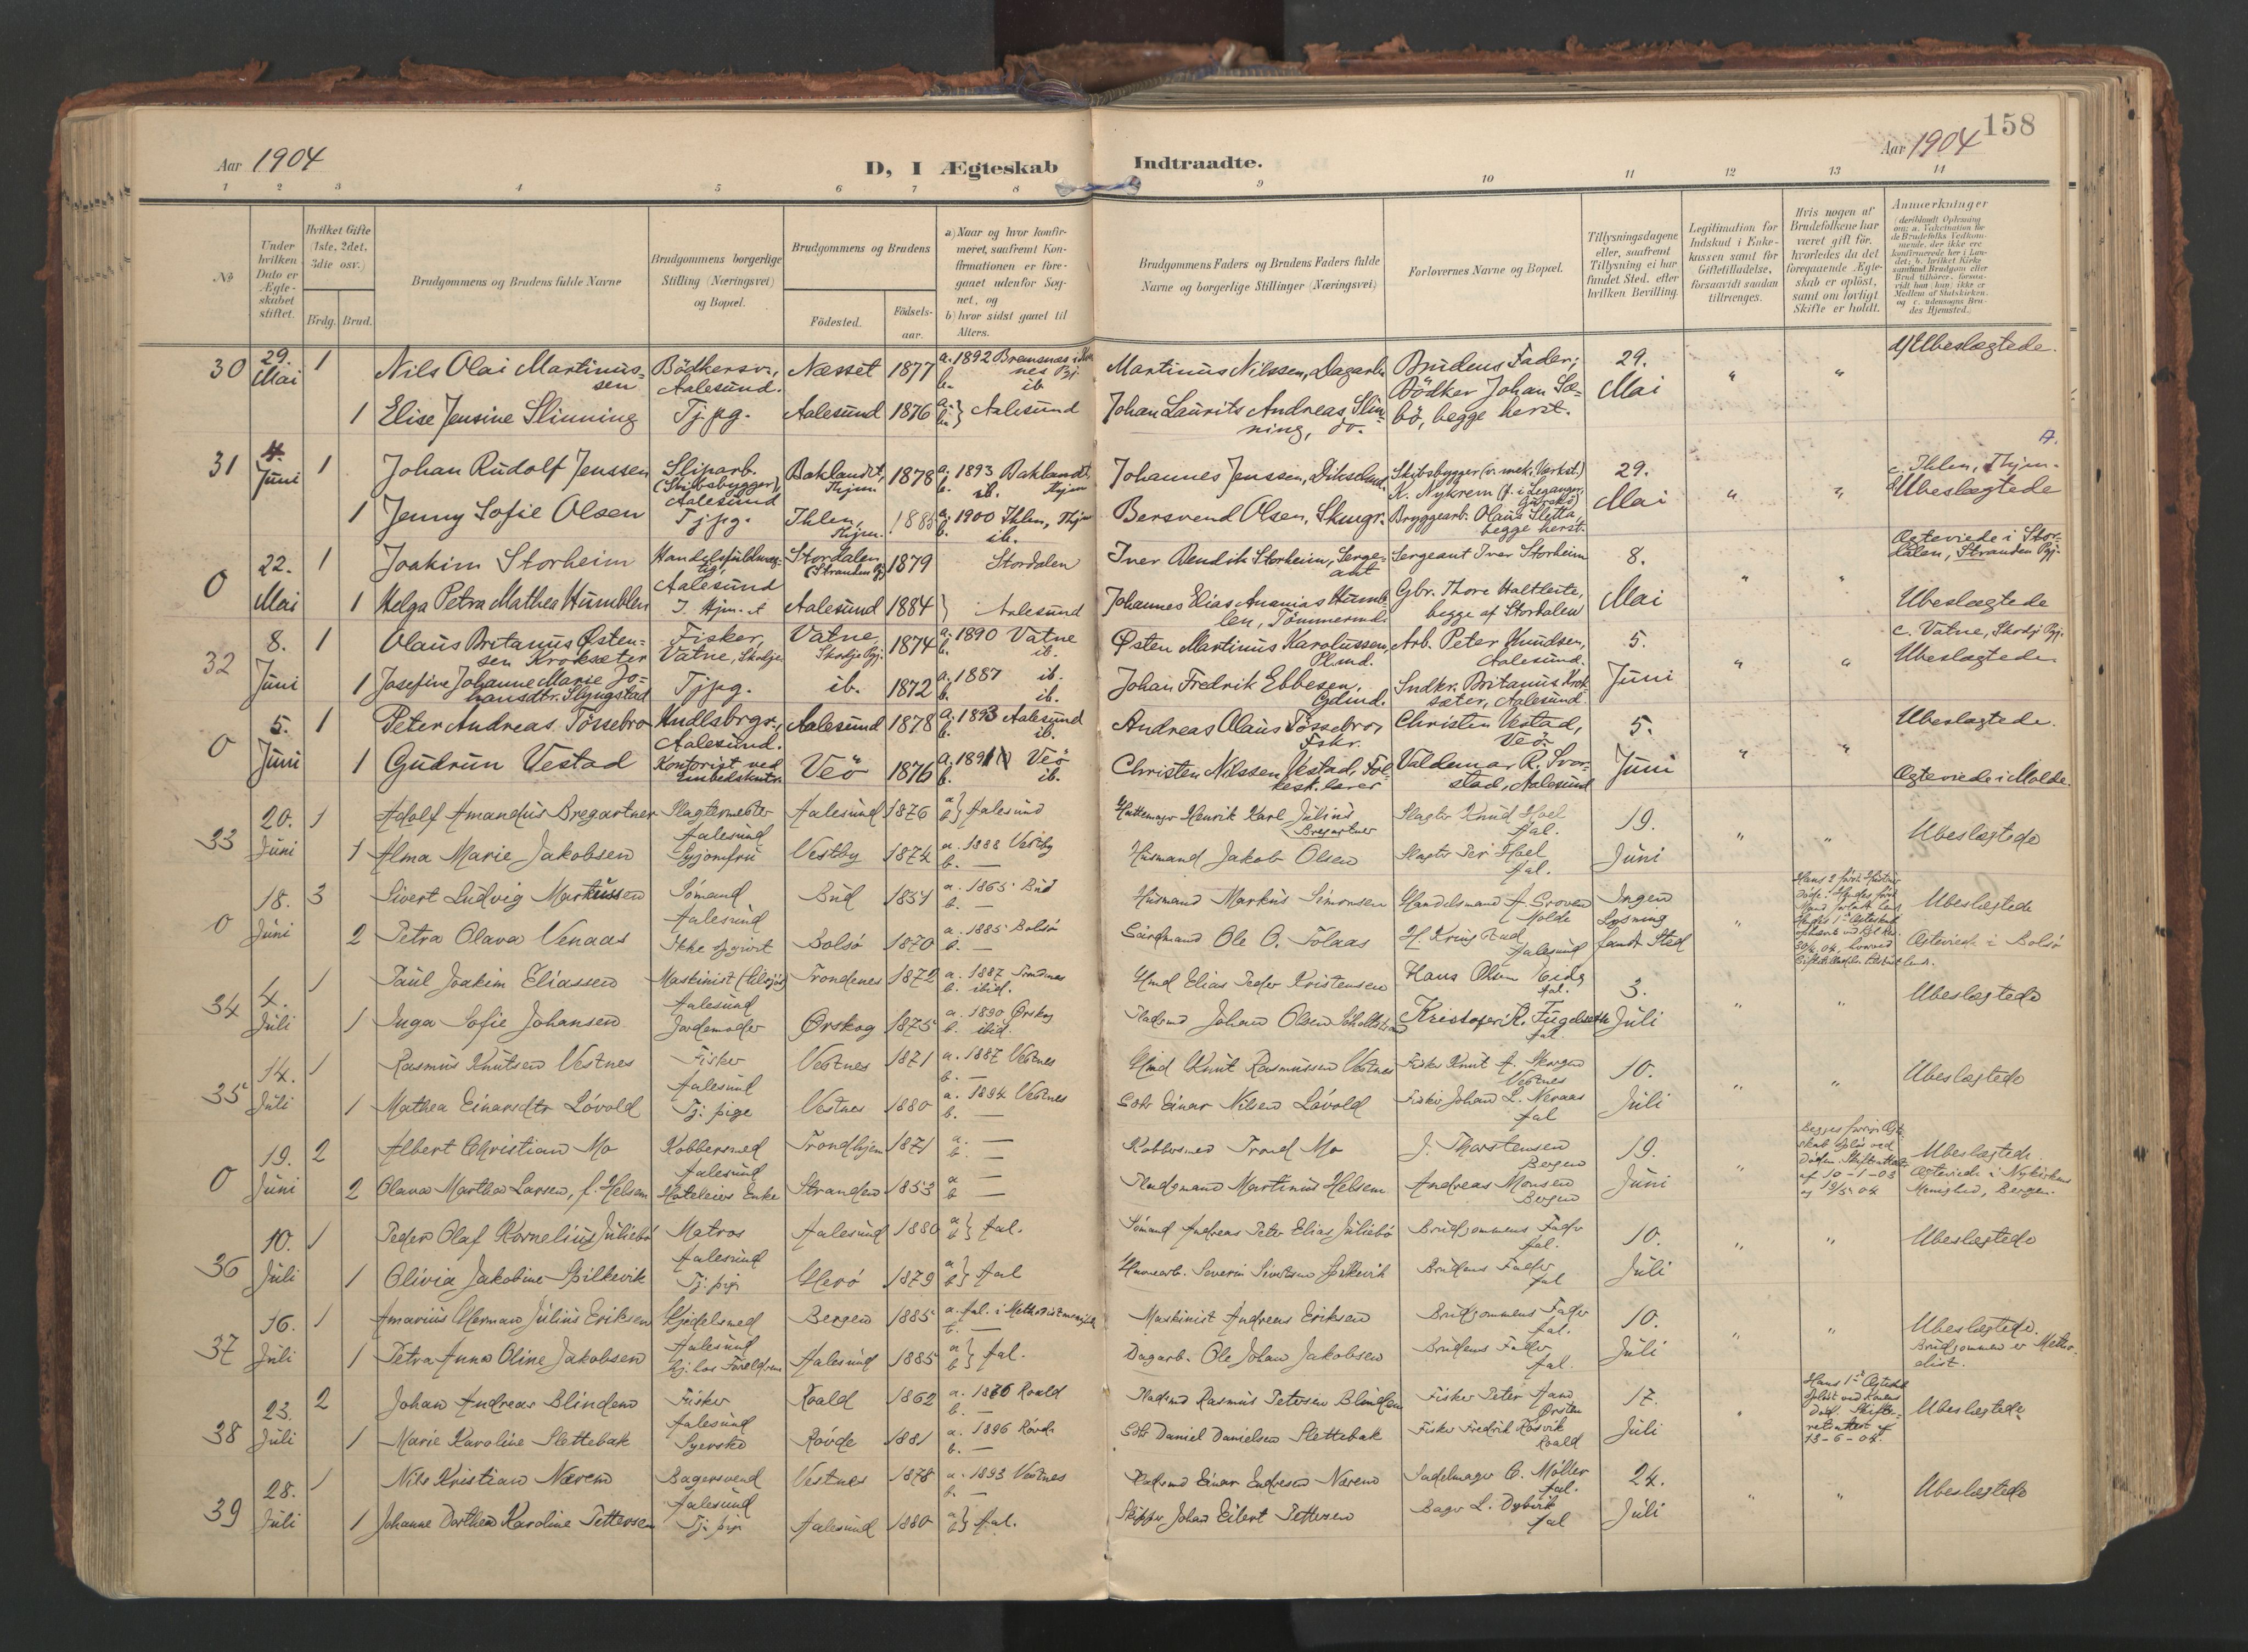 158
Aar 1904
D, I Ægteskab Indtraadte.
Aar 1904
1 2 3 4 5 6 7 8 9 10 11 12 13 14
No
Under hvilken Dato er Ægteskabet stiftet.
Hvilket Gifte (1ste, 2det, 3die osv.)
Brdg. Brud.
Brudgommens og Brudens fulde Navne
Brudgommens borgerlige Stilling (Næringsvei) og Bopæl.
Brudgommens og Brudens
Födested. Födsels-aar.
a) Naar og hvor konfirmeret, saafremt Konfirmationen er foregaaet udenfor Sognet, og
b) hvor sidst gaaet til Alters.
Brudgommens Faders og Brudens Faders fulde Navne og borgerlige Stillinger (Næringsvei)
Forlovernes Navne og Bopæl.
Tillysningsdagene eller, saafremt Tillysning ei har fundet Sted, efter hvilken Bevilling.
Legitimation for Indskud i Enkekassen samt for Giftetilladelse, forsaavidt saadan tiltrænges.
Hvis nogen af Brudefolkene har været gift för, hvorledes da det foregaaende Ægteskab er oplöst, samt om lovligt Skifte er holdt.
Anmærkninger
30 29. Mai 1 Nils Olai Martinussen Bödkersv., Aalesund. Næsset 1877 a. 1892 Bremsnæs b. ib. Martinus Nilssen, Dagarb. Brudens Fader; 29. Mai " " Ubeslægtede.
1 Elise Jensine Slinning Tjpg. Aalesund 1876 a. b. } Aalesund Johan Laurits Andreas Slinning, do. Bödker Johan Sæbö, begge herst.
31 4. Juni 1 Johan Rudolf Jenssen Sliparb. (Skibsbygger), Aalesund Baklandet, Thjem. 1878 a. 1893 Baklandet, Thjem b. ib. Johannes Jenssen, Skibsbygger (v. mek. Værkst.) K. Nykrem 29. Mai " " c. Ihlen, Thjem. Ubeslægtede
1 Jenny Sofie Olsen Tjpg. Ihlen, Thjem. 1885 a. 1900 Ihlen, Thjem b. ib. Bersvend Olsen, Skmgr. Bryggearb. Olaus Sletta, begge herst.
0 22. Mai 1 Joakim Storheim Handelsfuldmægtig, Aalesund Stordalen (Stranden Pgj) 1879 Stordalen Iver Bendik Storheim, Sergeant Sergeant Iver Storheim 8. Mai " " Ægteviede i Stordalen, Stranden Pgj.
1 Helga Petra Mathea Humblen I Hjm. Aalesund 1884 } Aalesund Johannes Elias Ananias Humblen, Tömmermd. Gbr. Thore Haltleite, begge af Stordalen Ubeslægtede
32 8. Juni 1 Olaus Britanus Østensen Kroksæter Fisker, Vatne, Skodje Vatne, Skodje Pgj. 1874 a. 1890 Vatne b. ib. Østen Martinus Karolussen, Plsmd. Arb. Peter Knudsen, Aalesund. 5. Juni " " c. Vatne, Skodj Pgj. Ubeslægtede
1 Josefine Johanne Marie Johansdtr. Slyngstad Tjpg. ib. 1872 a. 1887 ib. b. ib. Johan Fredrik Ebbesen, Gdmd. Sndkr. Britanus Kroksæter, Aalesund
0 5. Juni 1 Peter Andreas Tössebro Hndlsbrgr., Aalesund. Aalesund 1878 a. 1893 Aalesund b. ib. Andreas Olaus Tössebro, Fskr. Christen Vestad, Veö. 5. Juni " " Ubeslægtede.
1 Gudrun Vestad Kontorist ved Embedskntr. Veö 1876 a. 1891 Veö b. ib. Christen Nilssen Vestad, Folkesk.lærer Valdemar R. Svorstad, Aalesund Ægteviede i Molde.
33 20. Juni 1 Adolf Amandus Bregartner Slagtermester Aalesund Aalesund 1876 a b } Aalesund Hattemager Henrik Karl Julius Bregartner Slagter Knud Hoel Aal. 19. Juni " " Ubeslægtede
1 Alma Marie Jakobsen Syjomfru Vestby 1874 a. 1888 Vestby b. — Husmand Jakob Olsen Slagter Per Hoel Aal.
0 18. Juni 3 Sivert Ludvig Markussen Sömand Aalesund Bud 1851 a. 1865 Bud b. — Husmand Markus Simonsen Handelsmand A. Groven Molde Ingen Lysning fandt Sted " Ubeslægtede
2 Petra Olava Venaas Bolsö 1870 a. 1885 Bolsö b. — Gårdmand Ole O. Tolaas Aalesund Ægteviede i Bolsö
34 4. Juli 1 Paul Joakim Eliassen Maskinist (tilsjös) Aalesund Trondenes 1872 a. 1887 Trondenes b. ibid. Hmd Elias Peder Kristensen Hans Olsen Eide Aal. 3. Juli " " Ubeslægtede
1 Inga Sofie Johansen Jordemoder Ørskog 1875 a. 1890 Ørskog b. ibid. Pladsmd Johan Olsen Kristofer K. Fugelseth Aal.
35 14. Juli 1 Rasmus Knutsen Vestnes Fisker Aalesund Vestnes 1871 a. 1887 Vestnes b. — Gmd Knut Rasmussen Vestnes Fisker Knut A. Vestnes 10. Juli " " Ubeslægtede
1 Mathea Einarsdtr Lövold Tj. pige Vestnes 1880 a. 1894 Vestnes b. — Gbr Einar Nilsen Lövold Fisker Johan L. Neraas Aal
0 19. Juni 2 Albert Christian Mo Kobbersmed Aalesund Trondhjem 1871 a. — b. — Kobbersmed Trond Mo J. Thorstensen Bergen 19. Juni " Ubeslægtede. Ægteviede i Nykirkens Menighed, Bergen.
2 Olava Martha Larsen, f. Helsem Enke Stranden 1853 a — b — Pladsmand Martinus Helsem Andreas Monsen Bergen
36 10. Juli 1 Peder Olaf Kornelius Juliebö Matros Aalesund Aalesund 1880 a b } Aal. Sömand Andreas Peter Elias Juliebö Brudgommens Fader Aal. 10. Juli " " Ubeslægtede
1 Olivia Jakobine Spilkevik Tj. pige Herö 1879 a b } Aal Severin Sivertsen Spilkevik Brudens Fader Aal
37 16. Juli 1 Amarius Herman Julius Eriksen Kjedelsmed Aalesund Bergen 1885 a. Aal. i Methodistmenigh. b. — Maskinist Andreas Eriksen Brudgommens Fader Aal. 10. Juli " " Ubeslægtede. Brudgommen er Methodist.
1 Petra Anna Oline Jakobsen Hj. hos Forældrene Aalesund 1885 a b } Aal. Dagarb. Ole Johan Jakobsen Brudens Fader Aal.
38 23. Juli 2 Johan Andreas Blindem Fisker Aalesund Roald 1862 a. 1876 Roald b. — Pladsmd Rasmus Petersen Blindem Fisker Peter Aam Ørsten 17. Juli " Hans 1ste Ægteskab oplöst ved Konens Död. Skifteretsattest af 13-6-04. Ubeslægtede
1 Marie Karoline Slettebak Syerske Rovde 1881 a. 1896 Rovde b. — Gbr Daniel Danielsen Slettebak Fisker Fredrik Rösvik Roald
39 28. Juli 1 Nils Kristian Nærem Bagersvend Aalesund Vestnes 1878 a. 1893 Vestnes b. — Pladsmd Einar Endresen Nærem Sadelmager C. Möller Aal. 24. Juli " " Ubeslægtede
1 Johanne Dorthea Karoline Pettersen Tj. pige Aalesund 1880 a b } Aal. Skipper Johan Eilert Pettersen Bager L. Dybvik Aal